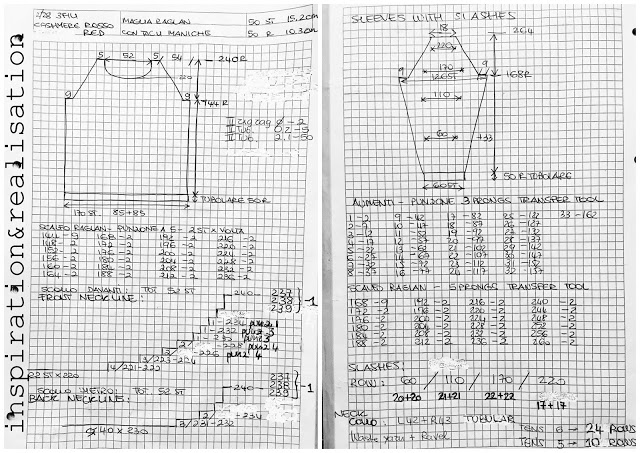 inspiration&realisation
1/28 3FILI
CASHMERE ROSSO
RED
MAGLIA RAGLAN
CON TAGLI MANICHE
50 ST 15.20cm
50 R 10.30cm
5 52 5 54 240R
220
9 9 144R
II zig zag 0-2
II Tub. 02-5
II Tub. 2.1-50
TUBOLARE 50R
170 ST. 85+85
SCALFO RAGLAN - PUNZONE A 5 - 2ST x VOLTA
144 -9 168 -2 192 -2 216 -2
148 -2 172 -2 196 -2 220 -2
152 -2 176 -2 200 -2 224 -2
156 -2 180 -2 204 -2 228 -2
160 -2 184 -2 208 -2 232 -2
164 -2 188 -2 212 -2 236 -2
SCOLLO DAVANTI: TOT 52 ST
FRONT NECKLINE:
240 237
239
239 -1
1-234 punz 1
1-232 punz 3
2-228 punz 4
2-226 punz 4
3/223-224
14/221-222
R2 ST x 220
SCOLLO DIETRO: TOT. 52 ST
BACK NECKLINE:
240 237
238
239 -1
2/ +234
3/231-232
40 x 230
SLEEVES WITH SLASHES
18 264
220
9 9
170
126ST 168R
110
60 +33
50 R TUBOLARE
60ST
AUMENTI - PUNZONE 3 PRONGS TRANSFER TOOL
1 -2 9 -42 17 -82 25 -122 33 -162
2 -7 10 -47 18 -87 26 -127
3 -12 11 -52 19 -92 27 -132
4 -17 12 -57 20 -97 28 -137
5 -22 13 -62 21 -102 29 -142
6 -27 14 -67 22 -107 30 -147
7 -32 15 -72 23 -112 31 -152
8 -37 16 -77 24 -117 32 -157
SCALFO RAGLAN - 5 PRONGS TRANSFER TOOL
168 -9 192 -2 216 -2 240 -2
172 -2 196 -2 220 -2 244 -2
176 -2 200 -2 224 -2 248 -2
180 -2 204 -2 228 -2 252 -2
184 -2 208 -2 232 -2 256 -2
188 -2 212 -2 236 -2 260 -2
SLASHES:
ROW: 60 / 110 / 170 / 220
20+20 21+21 22+22 17+17
NECK
COLLO: L42+R43 TUBULAR
Waste yarn + Ravel
TENS 6 → 24 ROWS
TENS 5 → 10 ROWS